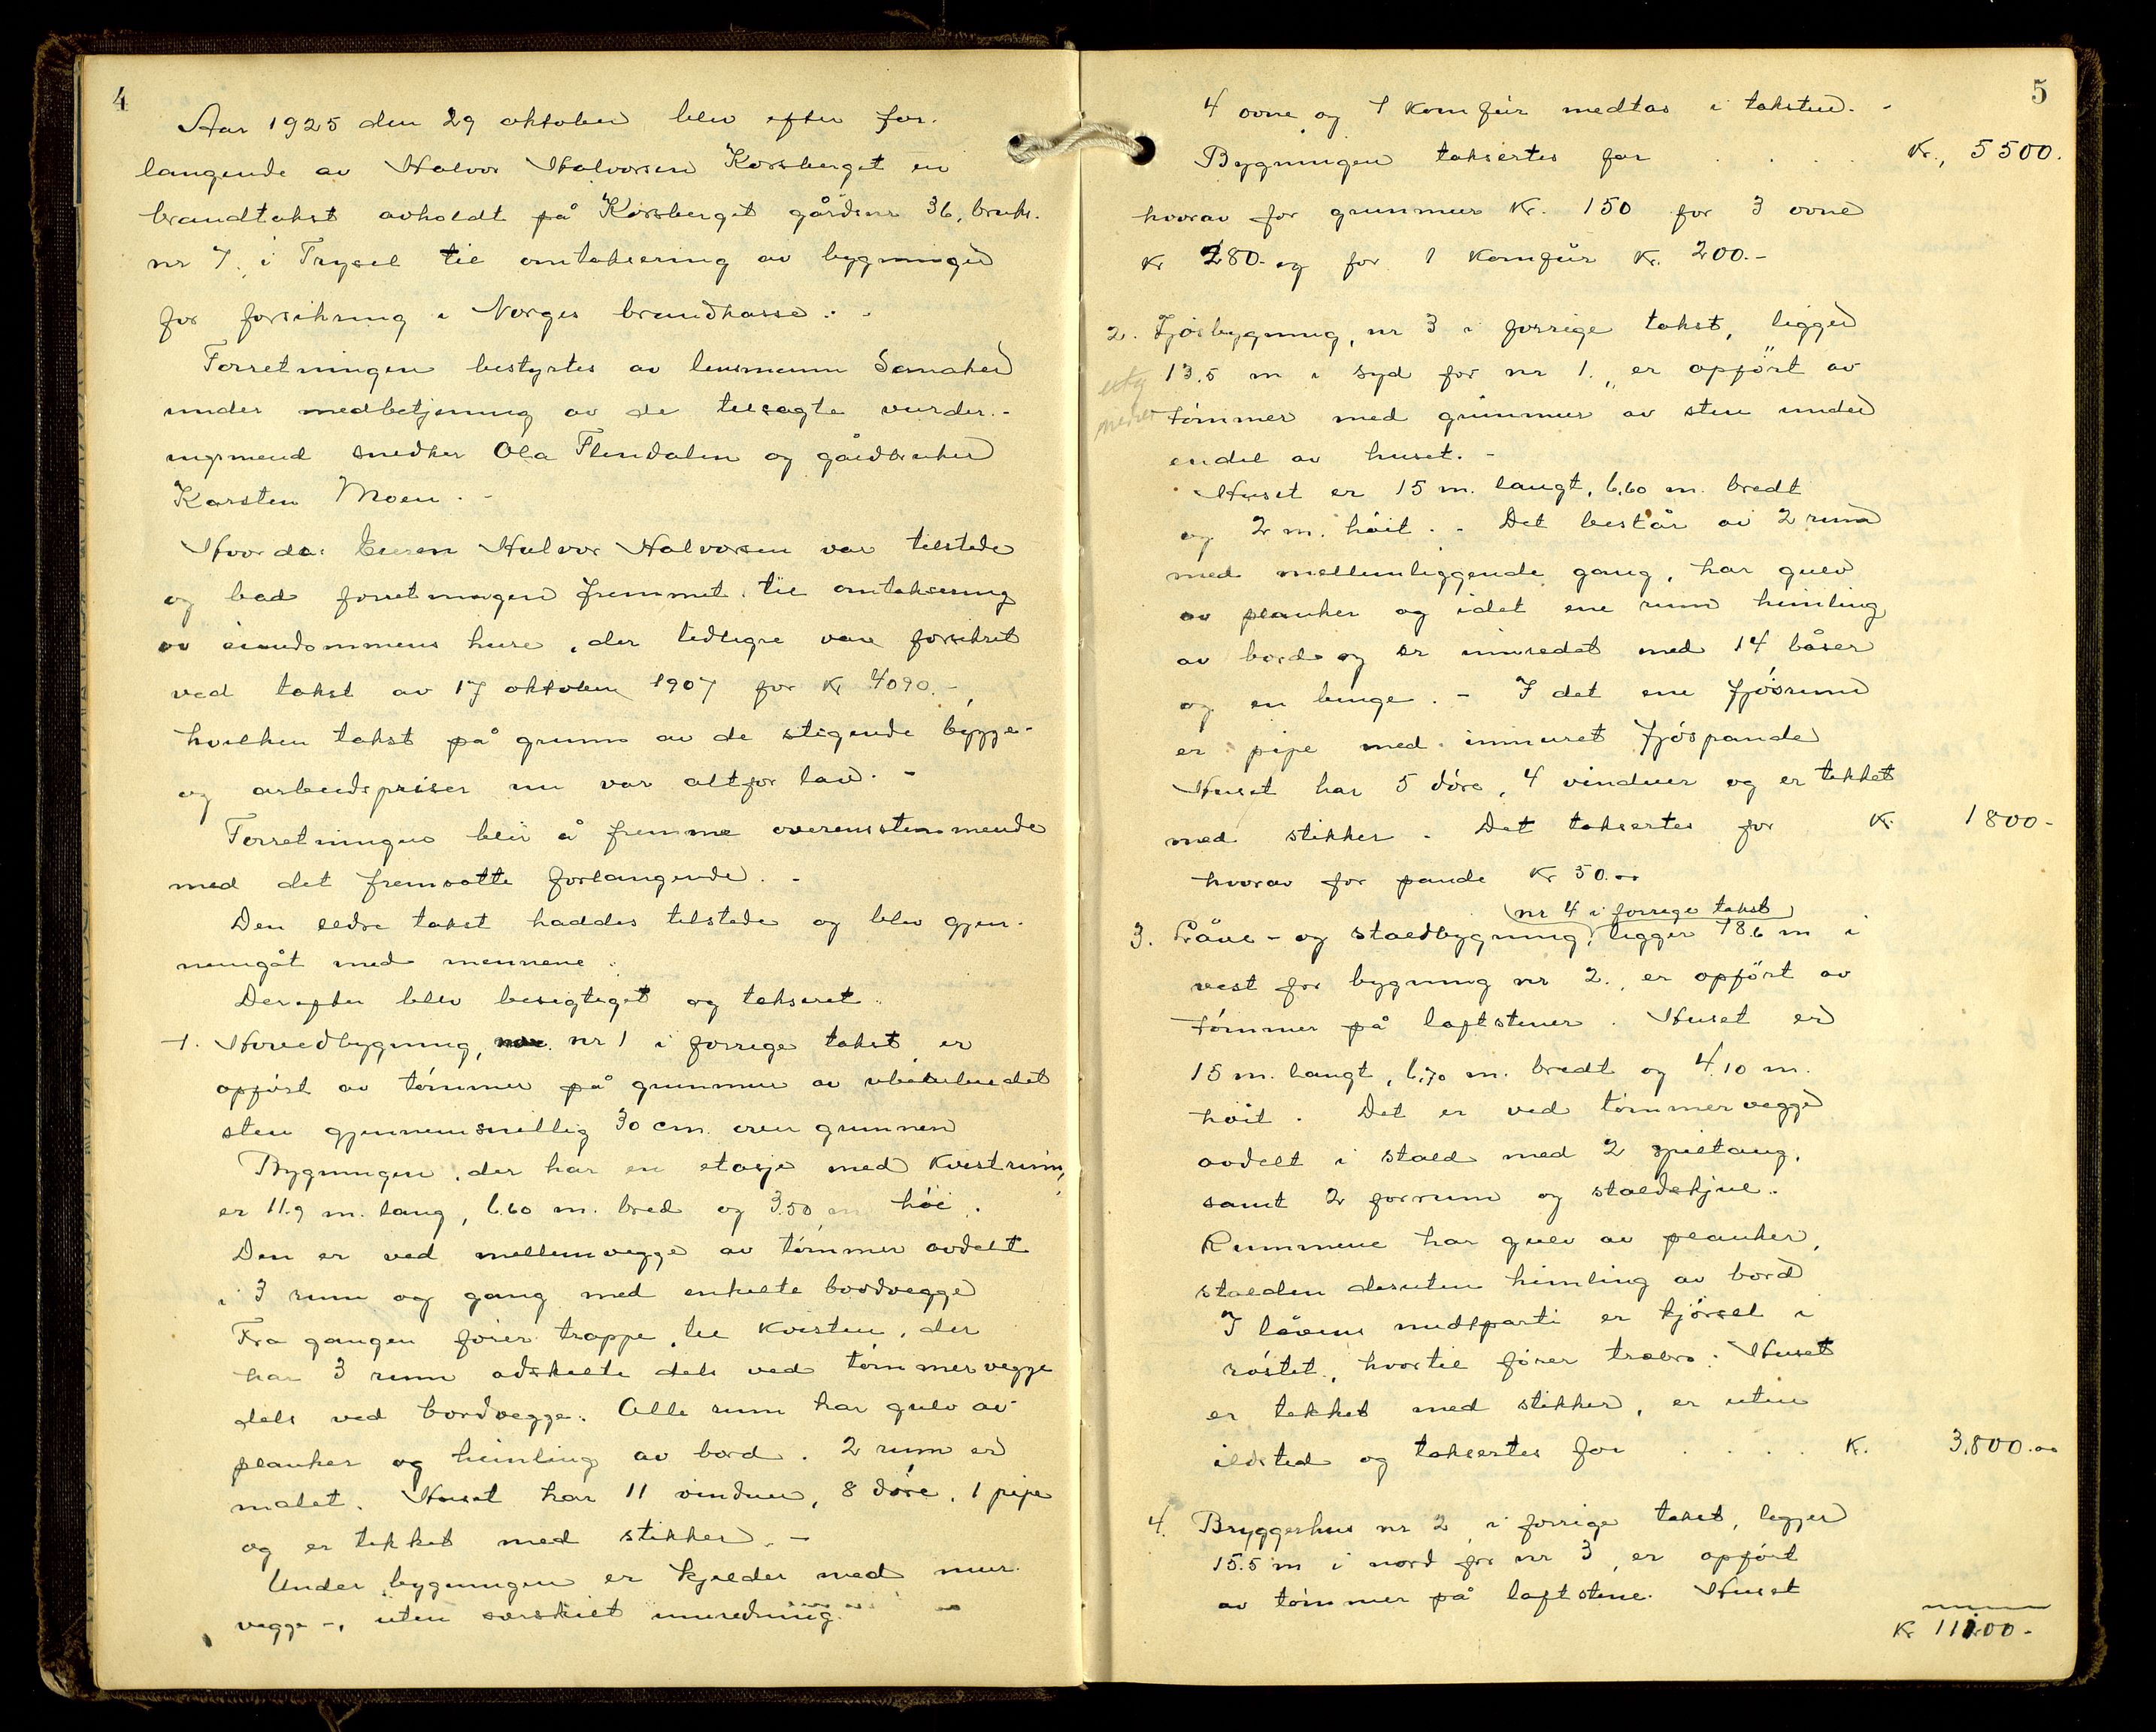 4
Aar 1925 den 29 oktober blev efter for-
langende av Halvor Halvorsen Korsberget en
brandtakst avholdt på Korsberget gårdsnr 36, bruks-
nr 7 i Trysil til omtaksering av bygninger
for forsikring i Norges brandkasse. -
Forretningen bestyrtes av lensmann Samaker
under medbetjening av de tilsagte vurder-
ingsmend snedker Ola Flendalen og gårdbruker
Karsten Moen. -
Hvorda: Eieren Halvor Halvorsen var tilstede
og bad forretningen fremmet til omtaksering
av eiendommens huse, der tidligre var forsikret
ved takst av 17 oktober 1907 for Kr 4090.-,
hvilken takst på grunn av de stigende bygge-
og arbeidspriser nu var altfor lav. -
Forretningen blir å fremme overensstemmende
med det fremsatte forlangende. -
Den eldre takst haddes tilstede og blev gjen-
nemgåt med mennene.
Derefter blev besigtiget og taksert:
1. Hovedbygning, nr 1 i forrige takst er
opført av tømmer på grunnmur av ubearbeidet
sten gjennemsnitlig 30 cm. over grunnen
Bygningen, der har en etasje med Kvistrum,
er 11.9 m. lang, 6.60 m. bred og 3.50 m høi.
Den er ved mellemvegge av tømmer avdelt
i 3 rum og gang med enkelte bordvegge
Fra gangen fører trappe til Kvisten, der
har 3 rum adskilte dels ved tømmervegge
dels ved bordvegge. Alle rum har gulv av
planker og himling av bord. 2 rum er
malet. Huset har 11 vinduer, 8 døre, 1 pipe
og er tekket med stikker. -
Under bygningen er kjelder med mur-
vegge -, uten særskilt innredning.
5
4 ovne og 1 Komfür medtas i taksten. -
Bygningen taksertes for . . . . Kr., 5500.
hvorav for grunnmur Kr. 150 for 3 ovne
Kr 280.- og for 1 Komfür Kr. 200.-
2. Fjøsbygning, nr 3 i forrige takst, ligger
13.5 m i syd for nr 1., er opført av
tømmer med grunnmur av sten under
endel av huset. -
Huset er 15 m. langt, 6.60 m. bredt
og 2 m. høit. - Det består av 2 rum
med mellemliggende gang, har gulv
av planker og i det ene rum himling
av bord og er innredet med 14 båser
og en binge. - I det ene fjøsrum
er pipe med innmuret fjøspande
Huset har 5 døre, 4 vinduer og er tekket
med stikker. Det taksertes for Kr. 1800-
hvorav for pande Kr 50.00
(nr 4 i forrige takst)
3. Låve- og staldbygning, ligger 18.6 m i
vest for bygning nr 2., er opført av
tømmer på laftstener. Huset er
15 m. langt, 6.70 m. bredt og 4.10 m.
høit. Det er ved tømmervegge
avdelt i stald med 2 spiltaug,
samt 2 forrum og staldskjul.
Rummene har gulv av planker,
stalden desuten himling av bord
I låvens midtparti er kjørsel i
røstet, hvortil fører træbro. Huset
er tekket med stikker, er uten
ildsted og taksertes for . . . . K. 3,800.00
4. Bryggerhus nr 2 i forrige takst, ligger
15.5 m i nord for nr 3, er opført
av tømmer på laftstene. Huset
Kr 11100.-